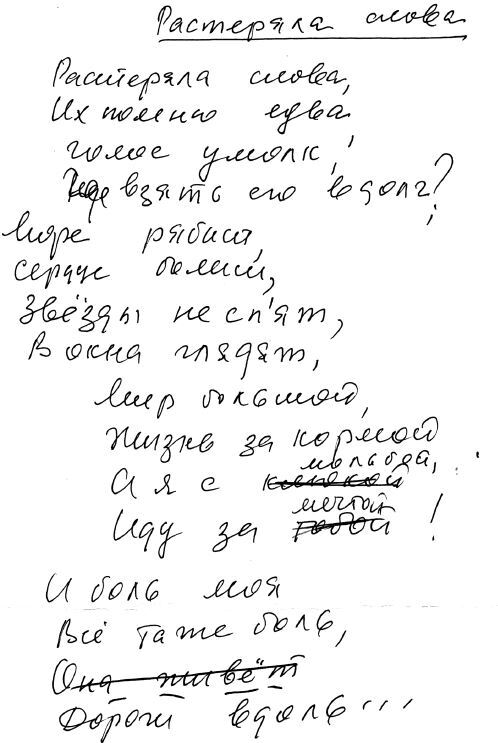 Растеряла слова
Растеряла слова,
Их помню едва
голос умолк,
Где взять его в долг?
Море рябит,
сердце болит,
Звёзды не спят,
В окна глядят,
Мир большой,
Жизнь за кормой
мольбой,
А я с
мечтой
Иду за тобой !
И боль моя
Всё та же боль,
Она живёт
Дороги вдоль...